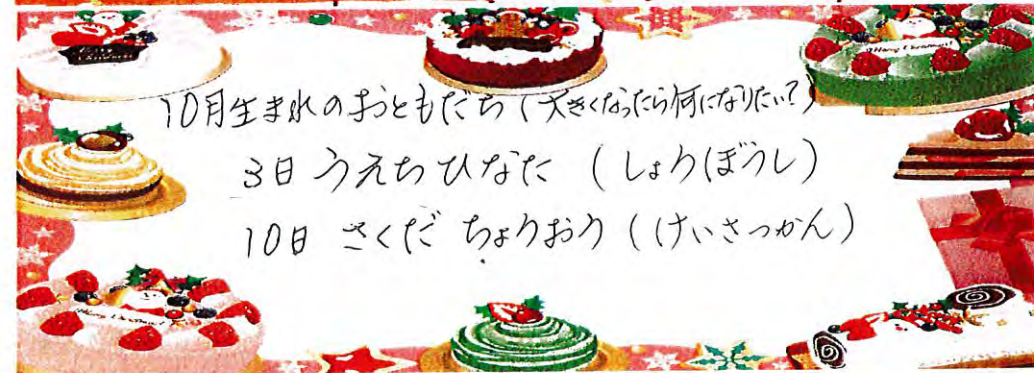 10月生まれのおともだち(大きくなったら何になりたい?)
3日 うえち ひなた (しょうぼうし)
10日 さくだ ちょうおう (けいさつかん)
Merry Christmas!